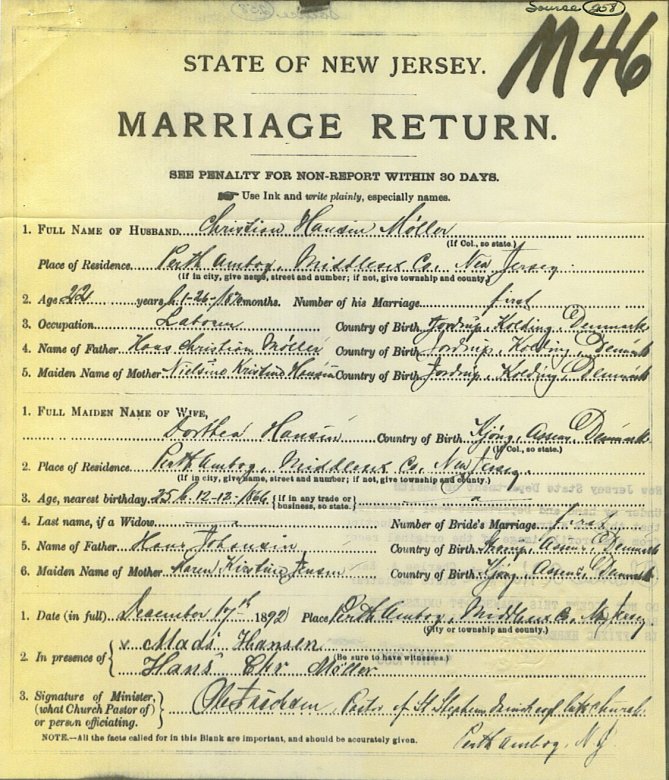 Source 258
M46
STATE OF NEW JERSEY.
MARRIAGE RETURN.
SEE PENALTY FOR NON-REPORT WITHIN 30 DAYS.
Use Ink and write plainly, especially names.
1. FULL NAME OF HUSBAND Christian Hansin Möller
(If Col., so state.)
Place of Residence Perth Amboy, Middlesex Co, New Jersey
(If in city, give name, street and number; if not, give township and county)
2. Age 22 years, months. Number of his Marriage first
3. Occupation Laborer Country of Birth Jordrup, Kolding, Denmark
4. Name of Father Hans Christian Möller Country of Birth Jordrup, Kolding, Denmark
5. Maiden Name of Mother Nielsine Kristine Hansin Country of Birth Jordrup, Kolding, Denmark
1. FULL MAIDEN NAME OF WIFE,
Dorthea Hansin Country of Birth Kjöng, Assens, Denmark
(If Col., so state.)
2. Place of Residence Perth Amboy, Middlesex Co, New Jersey
(If in city, give name, street and number; if not, give township and county)
3. Age, nearest birthday 25 b. 12-12-1866 {if in any trade or business, so state.}
4. Last name, if a Widow Number of Bride's Marriage first
5. Name of Father Hans Johansin Country of Birth Assens, Denmark
6. Maiden Name of Mother Karen Kirstine Jensen Country of Birth Kjöng, Assens, Denmark
1. Date (in full) December 17th 1892 Place Perth Amboy, Middlesex Co, N. Jersey
(City or township and county.)
2. In presence of { Mads Hansen
(Be sure to have witnesses.)
Hans Chr Möller
3. Signature of Minister, (what Church Pastor of) or person officiating. } Pastor of St Stephens Danish evgl luth church
Perth Amboy, N J
NOTE.—All the facts called for in this Blank are important, and should be accurately given.